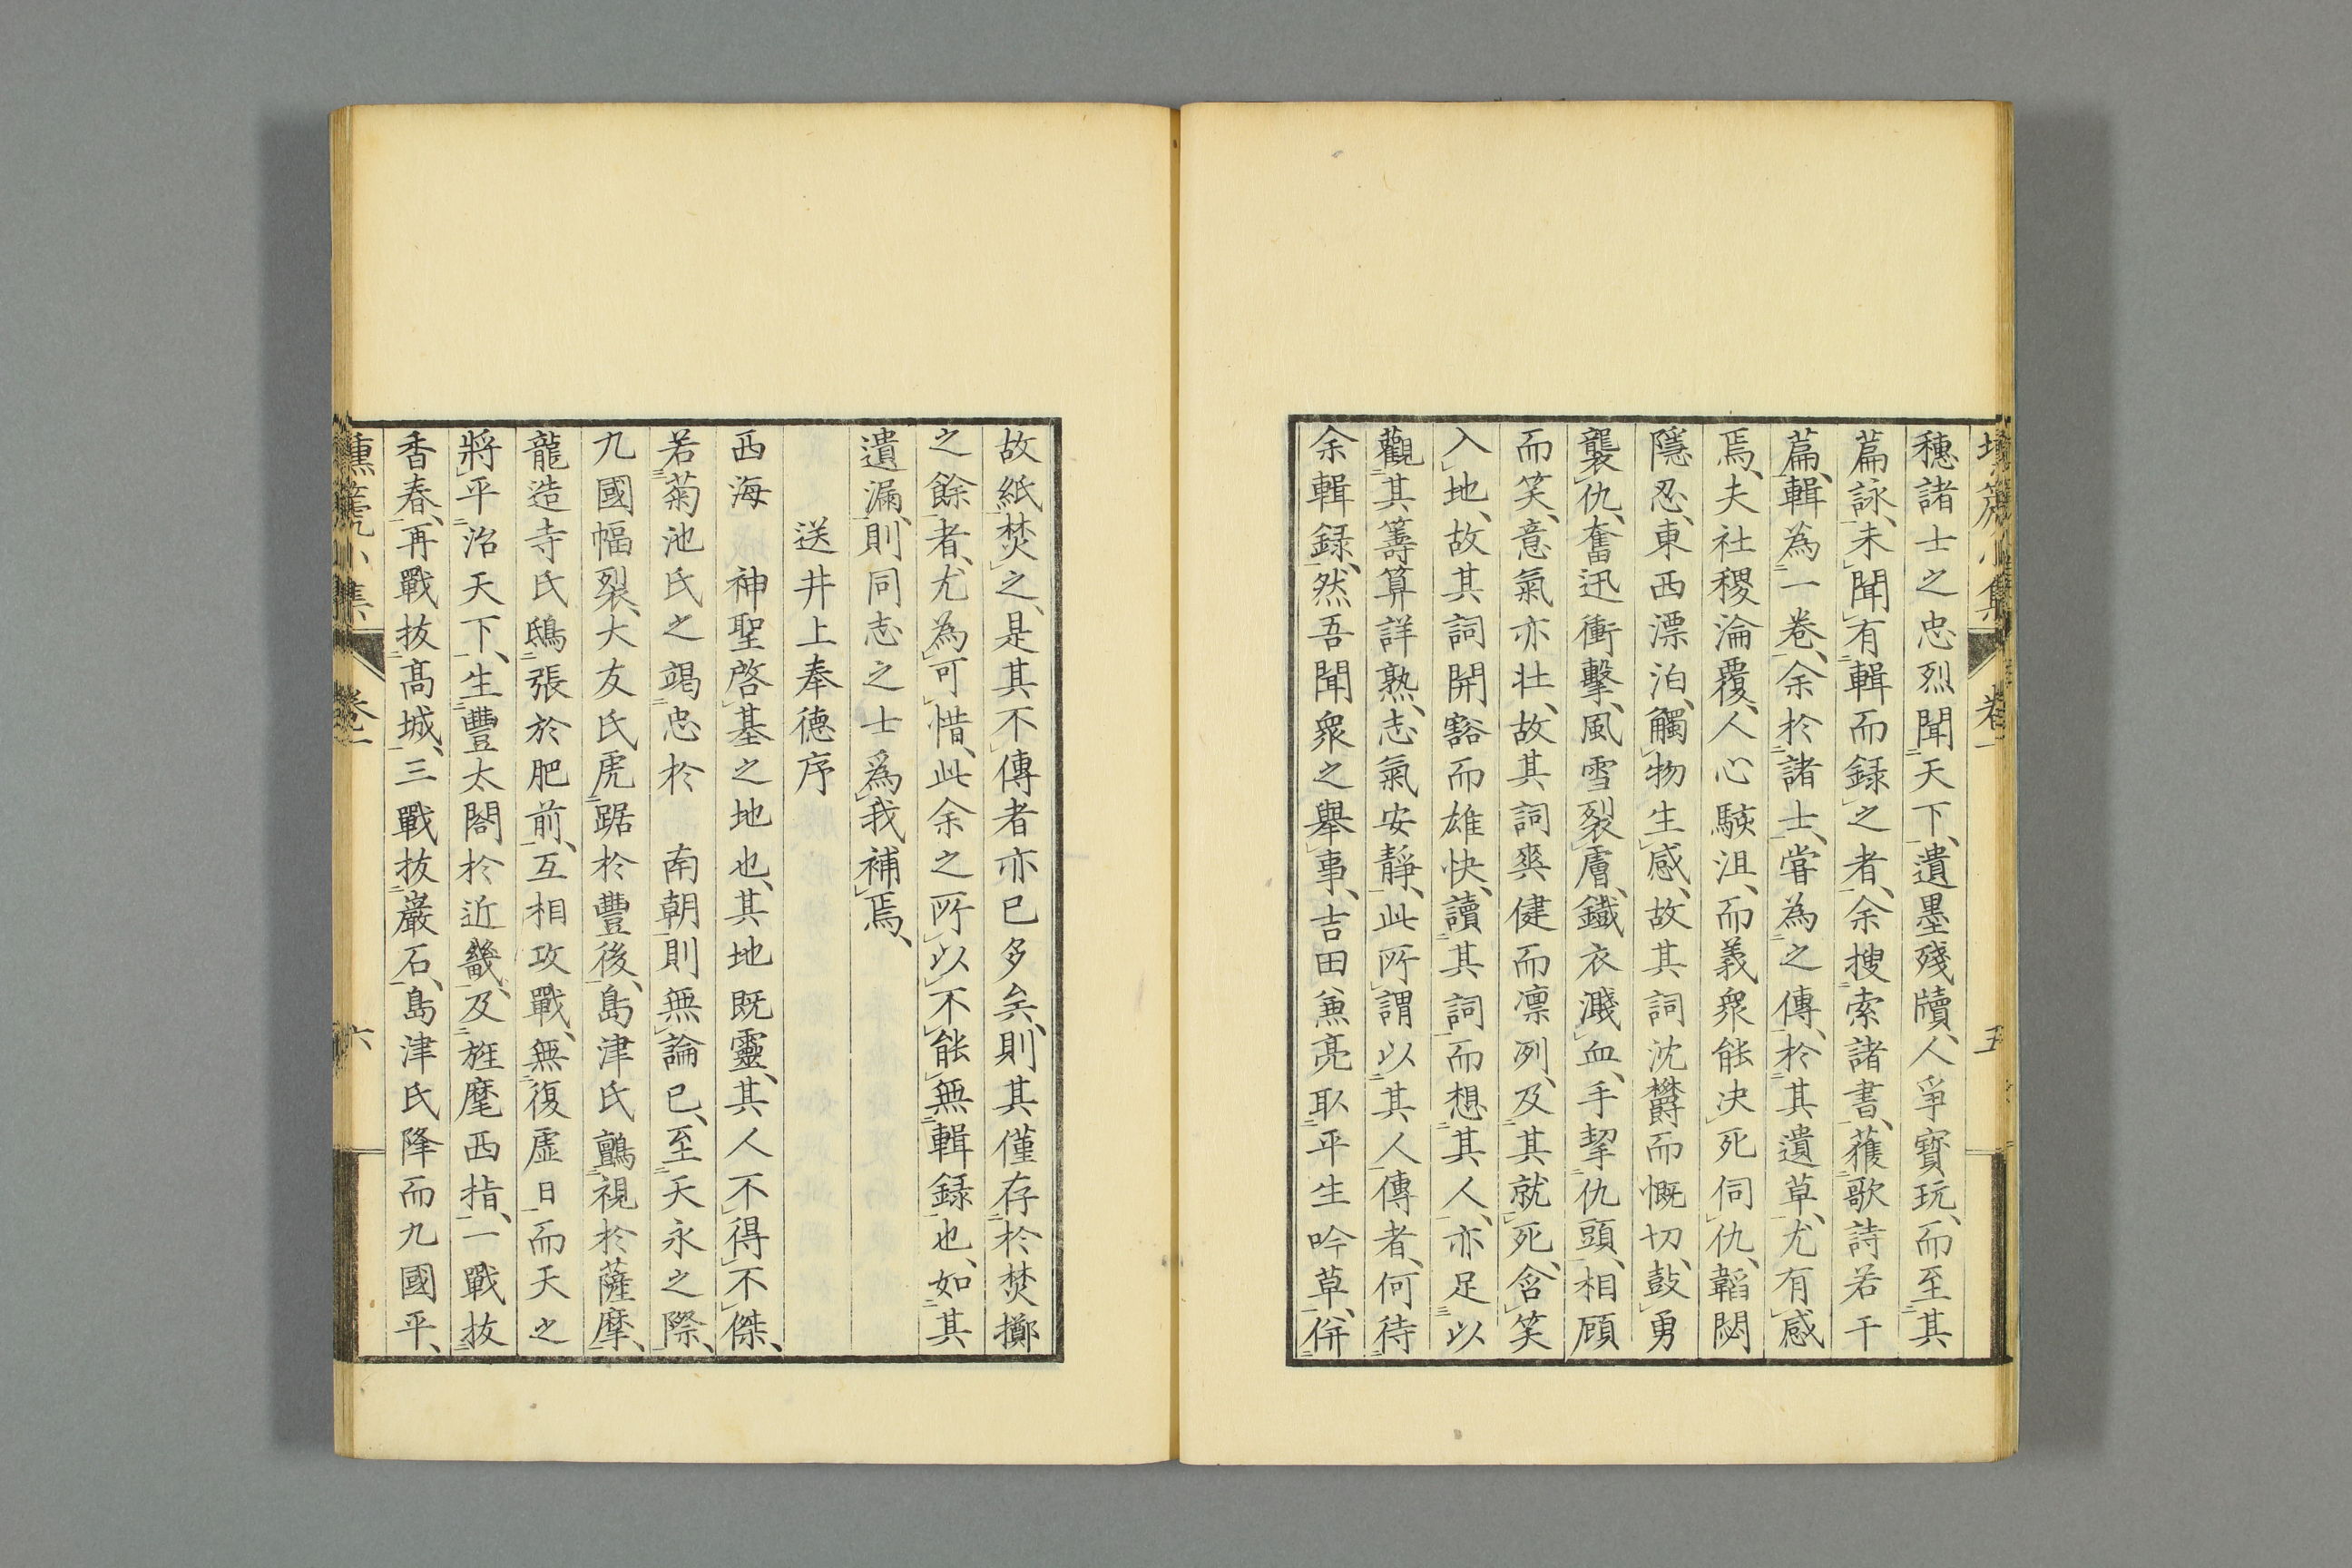 壎篪小集 卷一 五
穗諸士之忠烈聞天下、遺墨殘牘、人爭寶玩、而至其
篇詠、未聞有輯而録之者、余搜索諸書、獲歌詩若干
篇、輯為一卷、余於諸士、嘗為之傳、於其遺草、尤有感
焉、夫社稷淪覆、人心駭沮、而義衆能决死伺仇、韜閟
隱忍、東西漂泊、觸物生感、故其詞沈欝而慨切、鼓勇
襲仇、奮迅衝擊、風雪裂膚、鐵衣濺血、手挈仇頭、相顧
而笑、意氣亦壮、故其詞爽健而凛冽、及其就死、含笑
入地、故其詞開豁而雄快、讀其詞而想其人、亦足以
觀其籌算詳熟、志氣安靜、此所謂以其人傳者、何待
余輯録、然吾聞衆之舉事、吉田兼亮取平生吟草、併
故紙焚之、是其不傳者亦已多矣、則其僅存於焚擲
之餘者、尤為可惜、此余之所以不能無輯録也、如其
遺漏、則同志之士為我補焉、
送井上奉德序
西海 神聖啓基之地也、其地既靈、其人不得不傑、
若菊池氏之竭忠於 南朝則無論已、至天永之際、
九國幅裂、大友氏虎踞於豐後、島津氏鸇視於薩摩、
龍造寺氏鴟張於肥前、互相攻戰、無復虛日而天之
將平治天下、生豐太閤於近畿、及旌麾西指、一戰抜
香春、再戰抜高城、三戰抜巖石、島津氏降而九國平、
壎篪小集 卷一 六